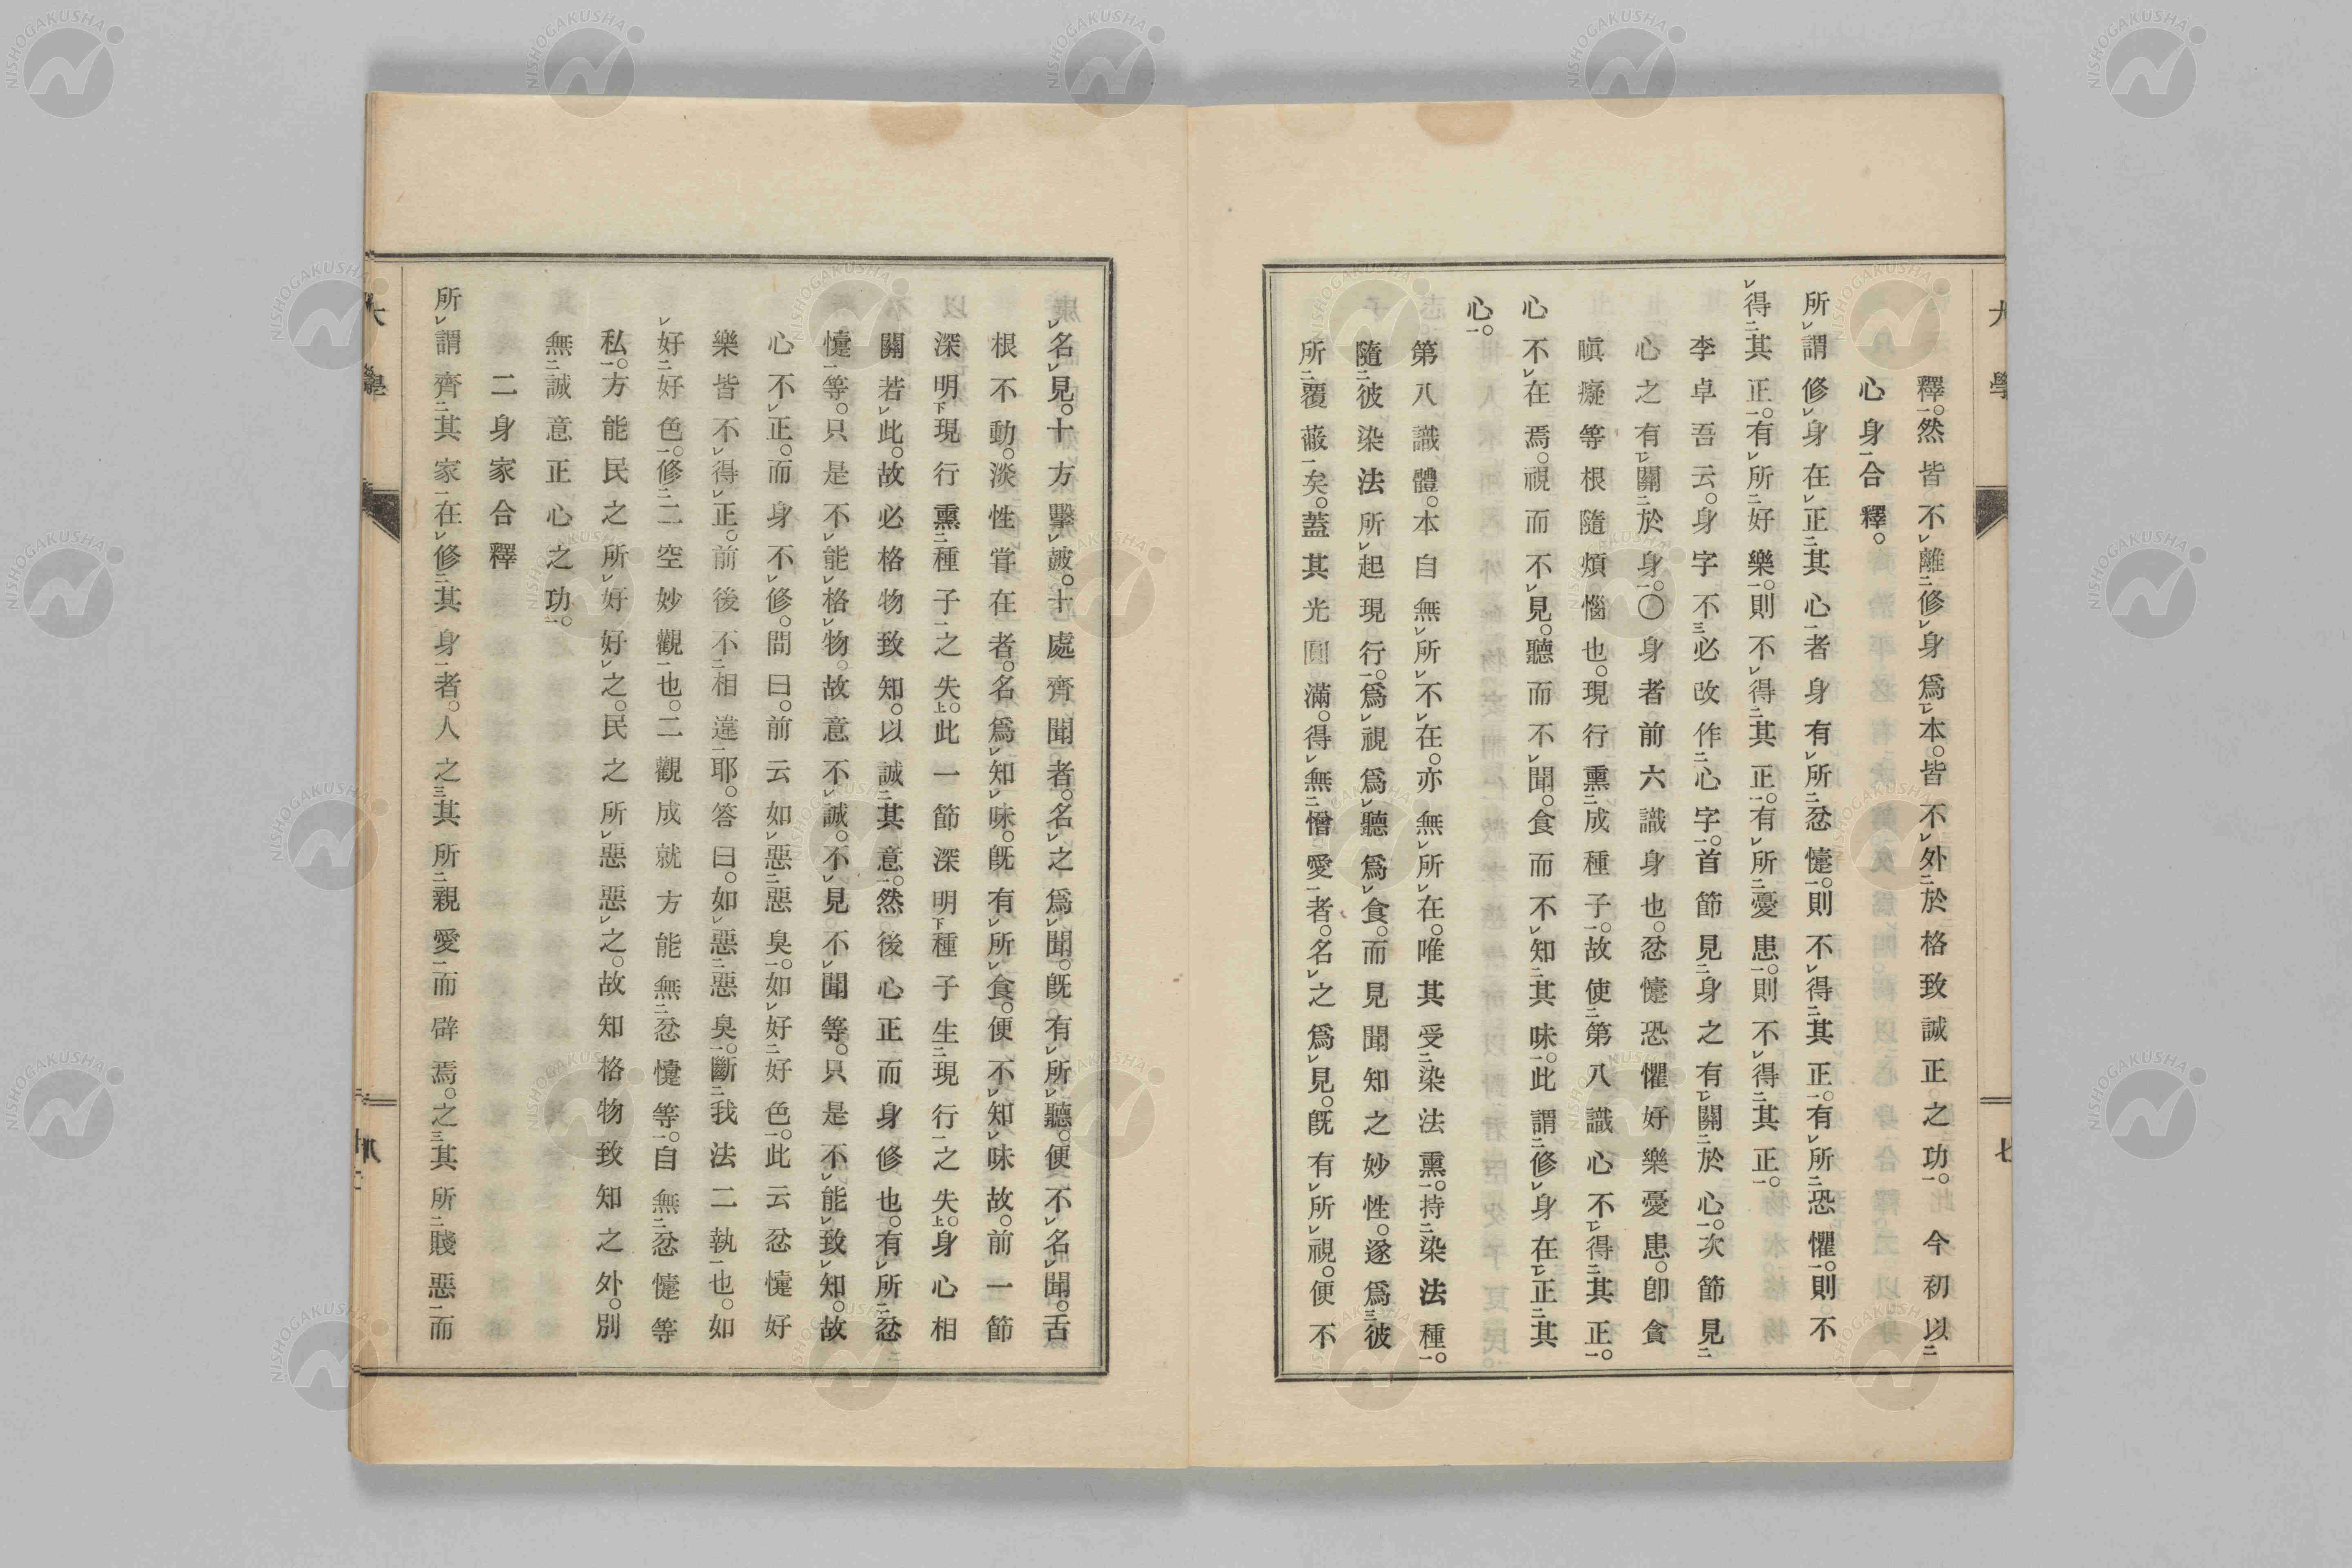 釋。然皆不離修身爲本。皆不外於格致誠正之功。今初以
心身合釋。
所謂修身在正其心者身有所忿懥。則不得其正。有所恐懼。則不
得其正。有所好樂。則不得其正。有所憂患。則不得其正。
李卓吾云。身字不必改作心字。首節見身之有關於心。次節見
心之有關於身。〇身者前六識身也。忿懥恐懼好樂憂患。卽貪
瞋癡等根隨煩惱也。現行熏成種子。故使第八識心不得其正。
心不在焉。視而不見。聽而不聞。食而不知其味。此謂修身在正其
心。
第八識體。本自無所不在。亦無所在。唯其受染法熏。持染法種。
隨彼染法所起現行。爲視爲聽爲食。而見聞知之妙性。遂爲彼
所覆蔽矣。蓋其光圓滿。得無憎愛者。名之爲見。旣有所視。便不
名見。十方擊皷。十處齊聞者。名之爲聞。旣有所聽。便不名聞。舌
根不動。淡性甞在者。名爲知味。旣有所食。便不知味故。前一節
深明現行熏種子之失。此一節深明種子生現行之失。身心相
關若此。故必格物致知。以誠其意。然後心正而身修也。有所忿
懥等。只是不能格物。故意不誠。不見不聞等。只是不能致知。故
心不正。而身不修。問曰。前云如惡惡臭。如好好色。此云忿懥好
樂皆不得正。前後不相違耶。答曰。如惡惡臭。斷我法二執也。如
好好色。修二空妙觀也。二觀成就方能無忿懥等。自無忿懥等
私。方能民之所好好之。民之所惡惡之。故知格物致知之外。別
無誠意正心之功。
二身家合釋
所謂齊其家在修其身者。人之其所親愛而辟焉。之其所賤惡而
大學